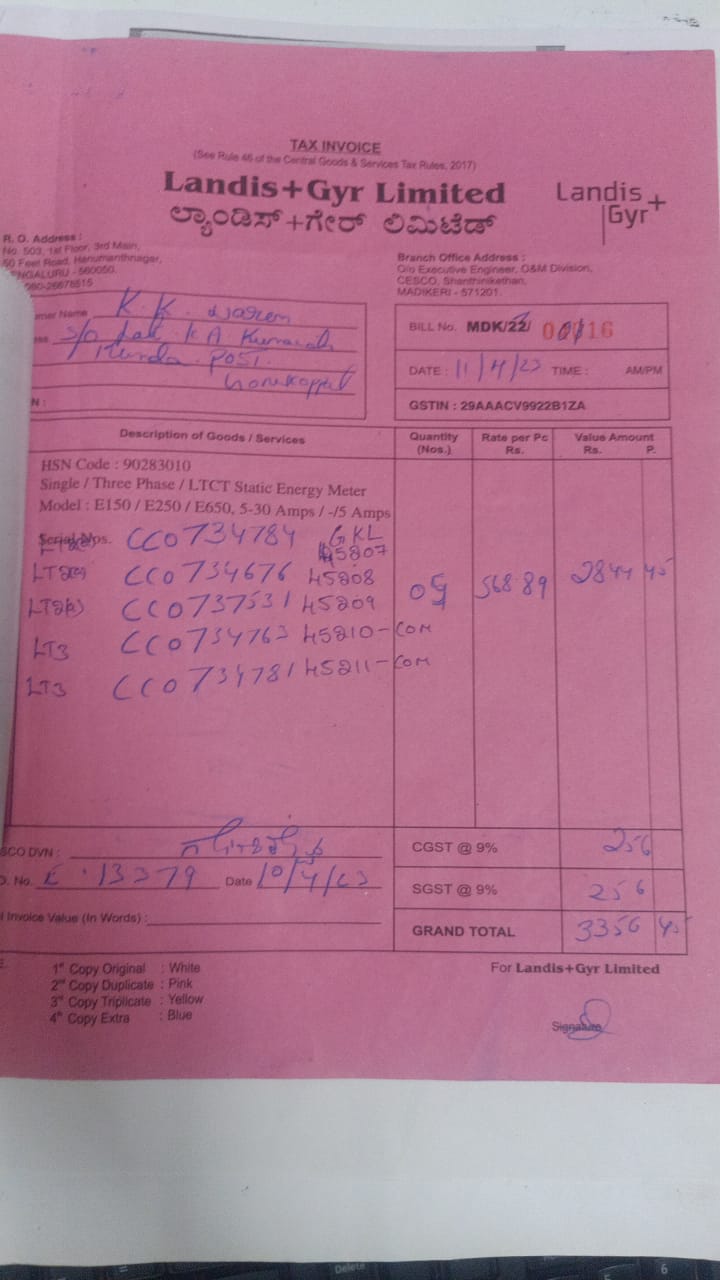 TAX INVOICE
(See Rule 46 of the Central Goods & Services Tax Rules, 2017)
Landis+Gyr Limited
ಲ್ಯಾಂಡಿಸ್+ಗೇರ್ ಲಿಮಿಟೆಡ್
Landis
Gyr+
R. O. Address :
No. 503, 1st Floor, 3rd Main,
50 Feet Road, Hanumanthnagar,
ENGALURU - 560050.
080-26678515
Branch Office Address :
O/o Executive Engineer, O&M Division,
CESCO, Shanthinikethan,
MADIKERI - 571201.
mer Name K. K.
ess S/o Late K A
Kunda. POST.
N :
BILL No. MDK/22/ 16
DATE : 11/4/23 TIME : AM/PM
GSTIN : 29AAACV9922B1ZA
Description of Goods / Services
Quantity (Nos.)
Rate per Pc Rs.
Value Amount Rs. P.
HSN Code : 90283010
Single / Three Phase / LTCT Static Energy Meter
Model : E150 / E250 / E650, 5-30 Amps / -/5 Amps
Serial Nos. CC0734784 GKL
45207
LT2(a) CC0734676 45208
LT2(a) CC0737531 45209
05 568.89 2844 45
LT3 CC0734763 45210-COM
LT3 CC0734781 45211-COM
SCO DVN :
CGST @ 9% 256
O. No. 13379 Date 10/4/23
SGST @ 9% 256
l Invoice Value (In Words) :
GRAND TOTAL 3356 45
1st Copy Original : White
2nd Copy Duplicate : Pink
3rd Copy Triplicate : Yellow
4th Copy Extra : Blue
For Landis+Gyr Limited
Signature
Delete
6